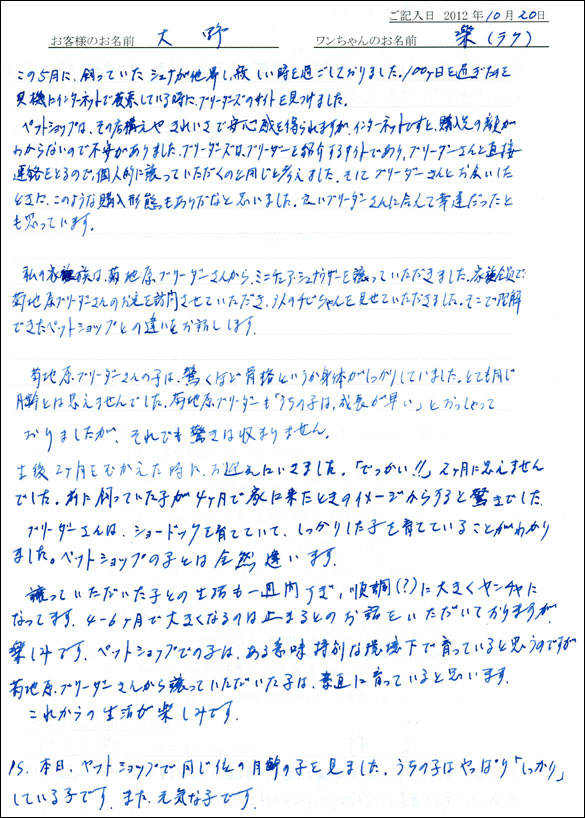 ご記入日 2012年10月20日
お客様のお名前 大野 ワンちゃんのお名前 楽(ラク)
この5月に、飼っていたシュナが他界し、寂しい時を過ごしておりました。100ヶ日を過ぎたのを
契機にインターネットで検索している時に、ブリーダーズのサイトを見つけました。
ペットショップは、その店構えやきれいさで安心感を得られますが、インターネットですと、購入先の顔が
わからないので不安がありました。ブリーダーズは、ブリーダーを紹介するサイトであり、ブリーダーさんと直接
連絡をとるので、個人的に譲っていただくのと同じと考えました。そしてブリーダーさんとお会いした
ときに、このような購入形態もありかなと思いました。良いブリーダーさんに会えて幸運だったと
も思っています。
私の家族は、菊地原ブリーダーさんから、ミニチュア・シュナウザーを譲っていただきました。家族全員で
菊地原ブリーダーさんのお宅を訪問させていただき、3人のチビちゃんを見せていただきました。そこで理解
できたペットショップとの違いをお話しします。
菊地原ブリーダーさんの子は、驚くほど骨格というか身体がしっかりしていました。とても同じ
月齢とは思えませんでした。菊地原ブリーダーも「うちの子は、成長が早い」とおっしゃって
おりましたが、それでも驚きは収まりません。
生後2ヶ月をむかえた時に、お迎えにいきました。「でっかい!!」2ヶ月に思えません
でした。前に飼っていた子が4ヶ月で家に来たときのイメージからすると驚きでした。
ブリーダーさんは、ショードックを育てていて、しっかりした子を育てていることがわかり
ました。ペットショップの子とは全然違います。
譲っていただいた子との生活も一週間すぎ、順調(?)に大きくヤンチャに
なってます。4-6ヶ月で大きくなるのは止まるとのお話をいただいておりますが、
楽しみです。ペットショップでの子は、ある意味特別な環境下で育っていると思うのですが
菊地原ブリーダーさんから譲っていただいた子は、素直に育っていると思います。
これからの生活が楽しみです。
PS. 本日、ペットショップで同じ位の月齢の子を見ました。うちの子はやっぱり「しっかり」
している子です。また、元気な子です。